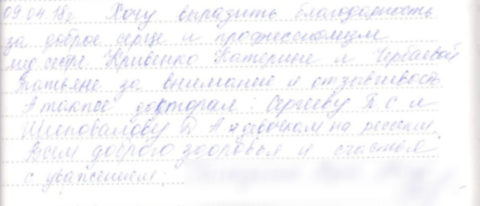 09.04.18г. Хочу выразить благодарность
за доброе сердце и профессионализм
мед сестре Кривенко Катерине и
Татьяне за внимание и отзывчивость
А также докторам: Сергееву П. С и
Шиповалову Д А и девочкам на ресепшн.
Всем доброго здоровья и счастья
с уважением: